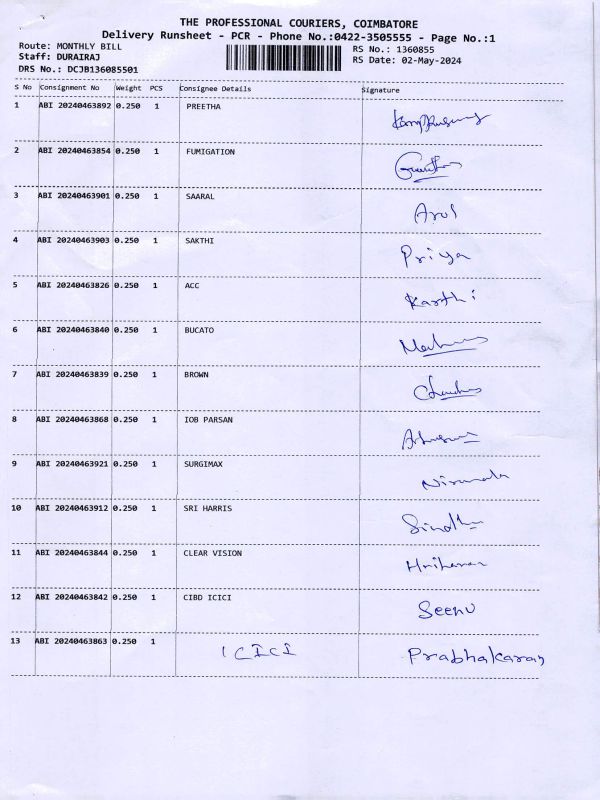 THE PROFESSIONAL COURIERS, COIMBATORE
Delivery Runsheet - PCR - Phone No.:0422-3505555 - Page No.:1
Route: MONTHLY BILL RS No.: 1360855
Staff: DURAIRAJ RS Date: 02-May-2024
DRS No.: DCJB136085501
S No Consignment No Weight PCS Consignee Details Signature
1 ABI 20240463892 0.250 1 PREETHA
2 ABI 20240463854 0.250 1 FUMIGATION
3 ABI 20240463901 0.250 1 SAARAL Arul
4 ABI 20240463903 0.250 1 SAKTHI Priya
5 ABI 20240463826 0.250 1 ACC Karthi
6 ABI 20240463840 0.250 1 BUCATO
7 ABI 20240463839 0.250 1 BROWN
8 ABI 20240463868 0.250 1 IOB PARSAN
9 ABI 20240463921 0.250 1 SURGIMAX Nirmala
10 ABI 20240463912 0.250 1 SRI HARRIS Sindhu
11 ABI 20240463844 0.250 1 CLEAR VISION Hriharan
12 ABI 20240463842 0.250 1 CIBD ICICI Seenu
13 ABI 20240463863 0.250 1 ICICI Prabhakaran